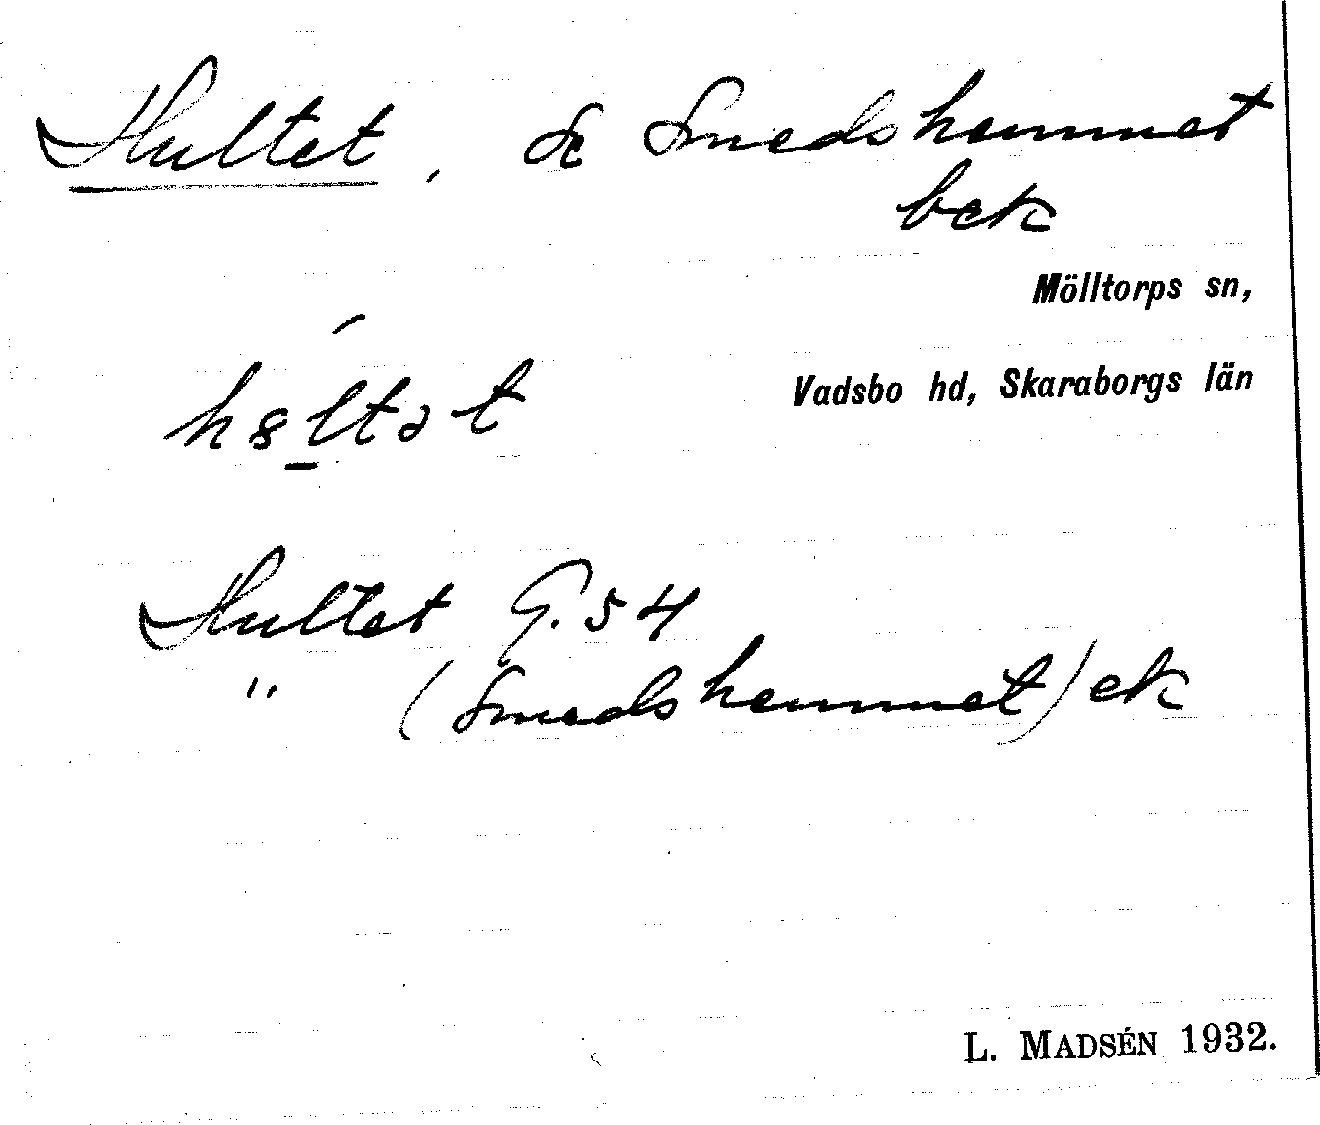 Hultet, se Smedshemmet
bek
Mölltorps sn,
Vadsbo hd, Skaraborgs län
Hultet G. 54
" (Smedshemmet) ek
L. MADSÉN 1932.